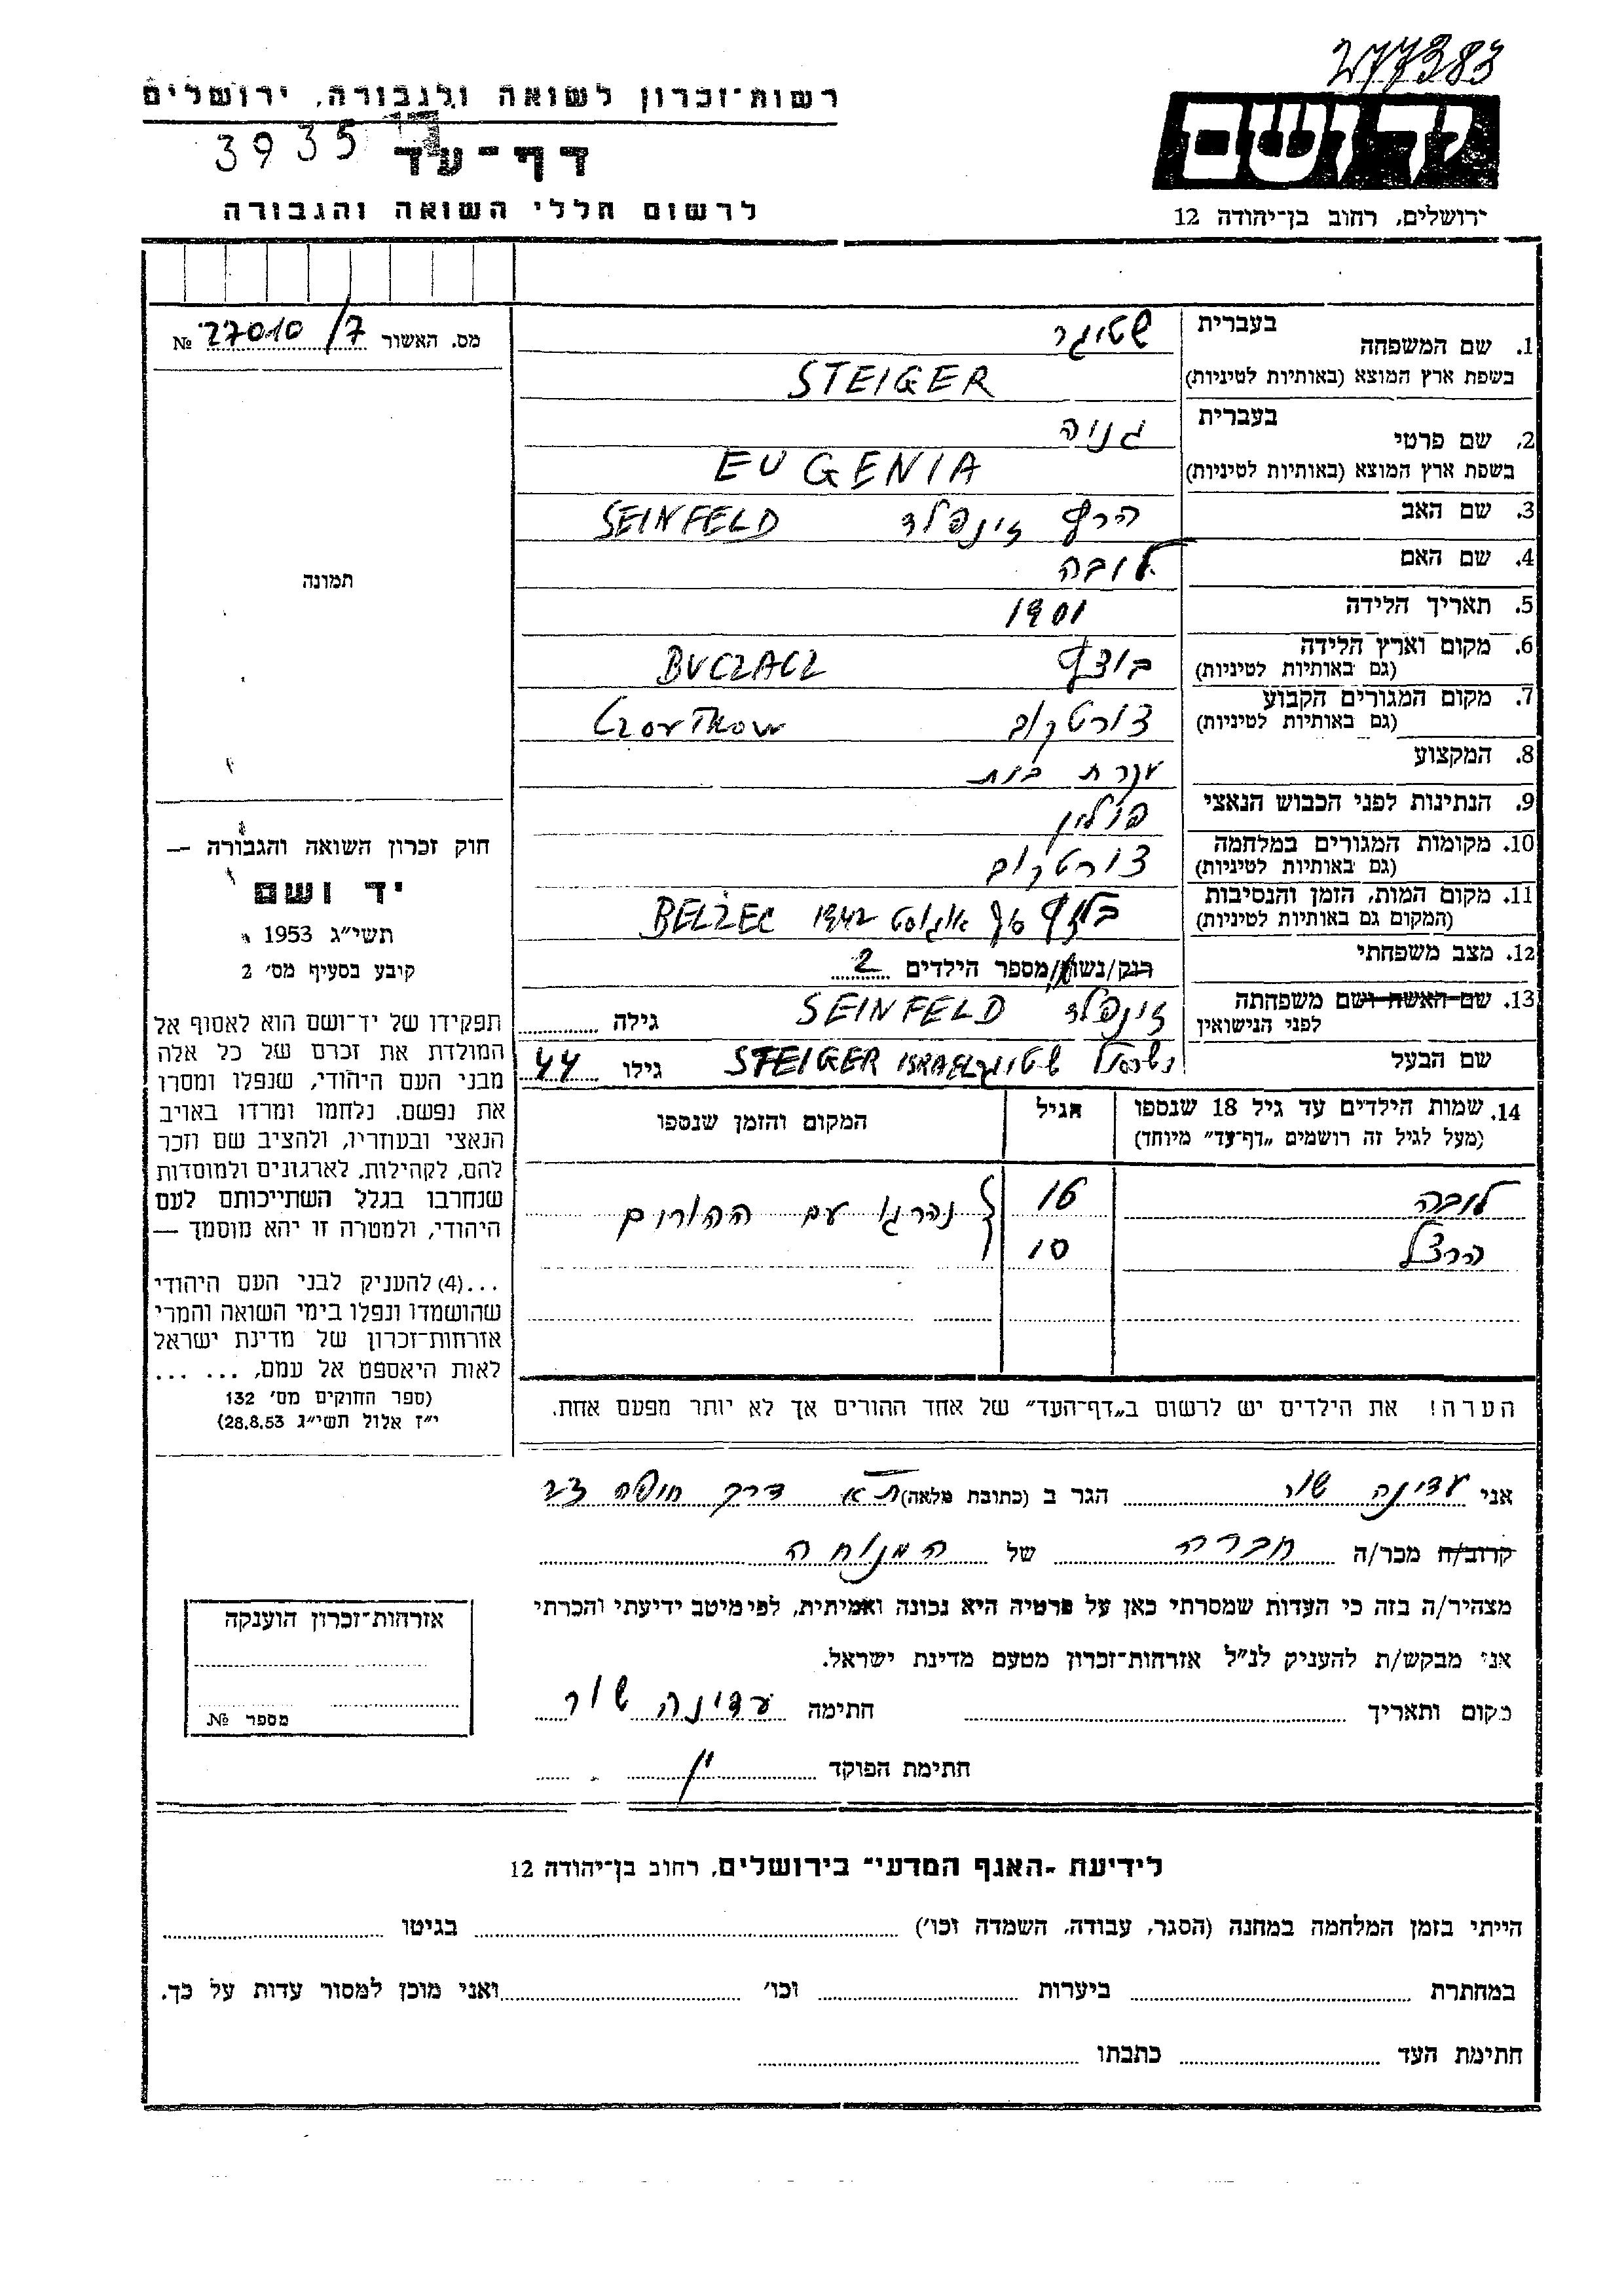 277383
רשות־זכרון לשואה ולגבורה, ירושלים
ידושם
3935
דף־עד
לרשום חללי השואה והגבורה
ירושלים, רחוב בן־יהודה 12
מס. האשור № 27010/7
תמונה
1. שם המשפחה בעברית שטיגר
בשפת ארץ המוצא (באותיות לטיניות) STEIGER
2. שם פרטי בעברית גניה
בשפת ארץ המוצא (באותיות לטיניות) EUGENIA
3. שם האב הרש זינפלד SEINFELD
4. שם האם לובה
5. תאריך הלידה 1901
6. מקום וארץ הלידה
(גם באותיות לטיניות) בוצץ BUCZACZ
7. מקום המגורים הקבוע
(גם באותיות לטיניות) צורטקוב CZORTKOW
8. המקצוע עקרת בית
9. הנתינות לפני הכבוש הנאצי פולין
10. מקומות המגורים במלחמה
(גם באותיות לטיניות) צורטקוב
11. מקום המות, הזמן והנסיבות
(המקום גם באותיות לטיניות) בלזץ סוף אוגוסט 1942 BELZEC
12. מצב משפחתי רוק/נשוי/מספר הילדים 2
13. שם האשה ושם משפחתה
לפני הנישואין זינפלד SEINFELD גילה
שם הבעל ישראל שטיגר STEIGER ISRAEL גילו 44
14. שמות הילדים עד גיל 18 שנספו
(מעל לגיל זה רושמים „דף־עד” מיוחד)
הגיל
המקום והזמן שנספו
לובה 16 נהרגו עם ההורים
הרצל 10
הערה! את הילדים יש לרשום ב„דף־העד” של אחד ההורים אך לא יותר מפעם אחת.
חוק זכרון השואה והגבורה —
יד ושם
תשי״ג 1953
קובע בסעיף מס׳ 2
תפקידו של יד־ושם הוא לאסוף אל
המולדת את זכרם של כל אלה
מבני העם היהודי, שנפלו ומסרו
את נפשם, נלחמו ומרדו באויב
הנאצי ובעוזריו, ולהציב שם וזכר
להם, לקהילות, לארגונים ולמוסדות
שנחרבו בגלל השתייכותם לעם
היהודי, ולמטרה זו יהא מוסמך —
...(4) להעניק לבני העם היהודי
שהושמדו ונפלו בימי השואה והמרי
אזרחות־זכרון של מדינת ישראל
לאות היאספם אל עמם, ... ...
(ספר החוקים מס׳ 132
י״ז אלול תשי״ג 28.8.53)
אני עדינה שור הגר ב (כתובת מלאה) ת״א דרך חיפה 23
קרוב/ה מכר/ה חברה של המנוחה
מצהיר/ה בזה כי העדות שמסרתי כאן על פרטיה היא נכונה ואמיתית, לפי מיטב ידיעתי והכרתי
אני מבקש/ת להעניק לנ״ל אזרחות־זכרון מטעם מדינת ישראל.
מקום ותאריך חתימה עדינה שור
חתימת הפוקד
אזרחות־זכרון הוענקה
מספר №
לידיעת „האגף המדעי” בירושלים, רחוב בן־יהודה 12
הייתי בזמן המלחמה במחנה (הסגר, עבודה, השמדה וכו׳) בגיטו
במחתרת ביערות וכו׳ ואני מוכן למסור עדות על כך.
חתימת העד כתבתו